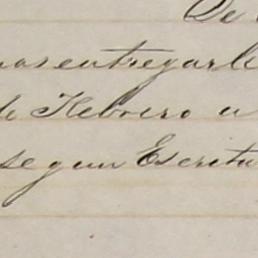 De
mas entregarle
de Febrero
segun Escritu